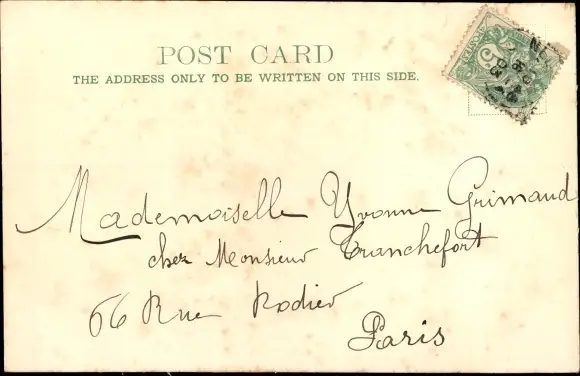 POST CARD
THE ADDRESS ONLY TO BE WRITTEN ON THIS SIDE.
Mademoiselle Yvonne Grimaud
chez Monsieur Tranchefort
66 Rue Rodier
Paris